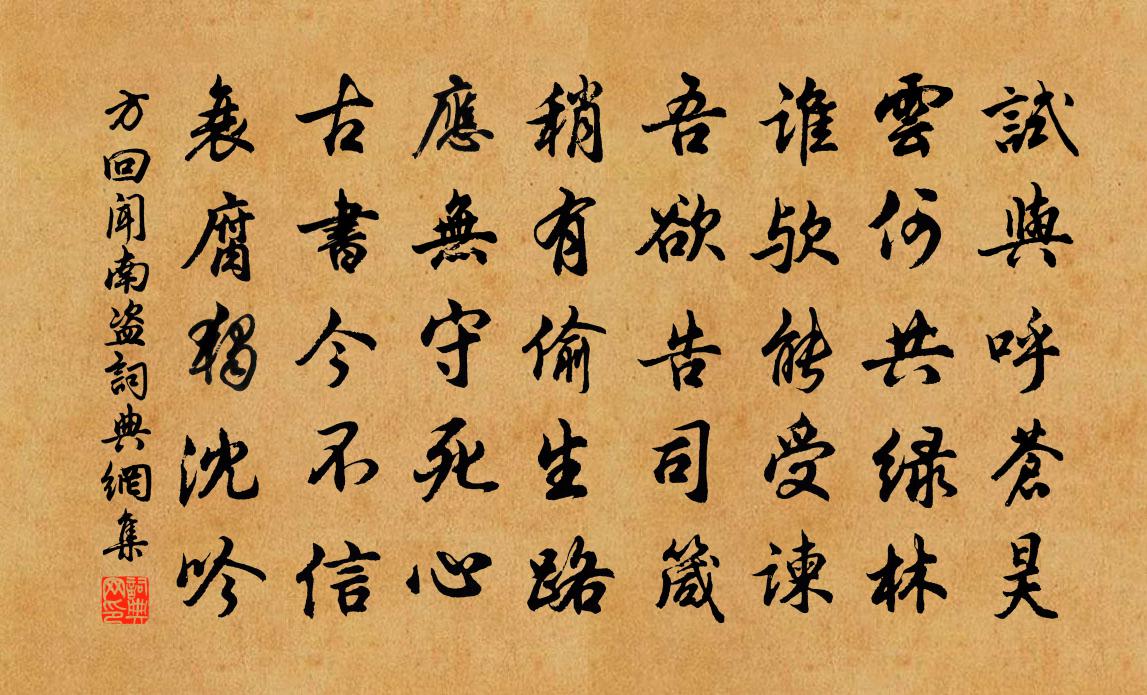 試與呼蒼昊
雲何共緑林
誰欤能受諫
吾欲告司箴
稍有偷生路
應無守死心
古書今不信
衰腐獨沈吟
方回聞南盜詞典網集
詞典网印